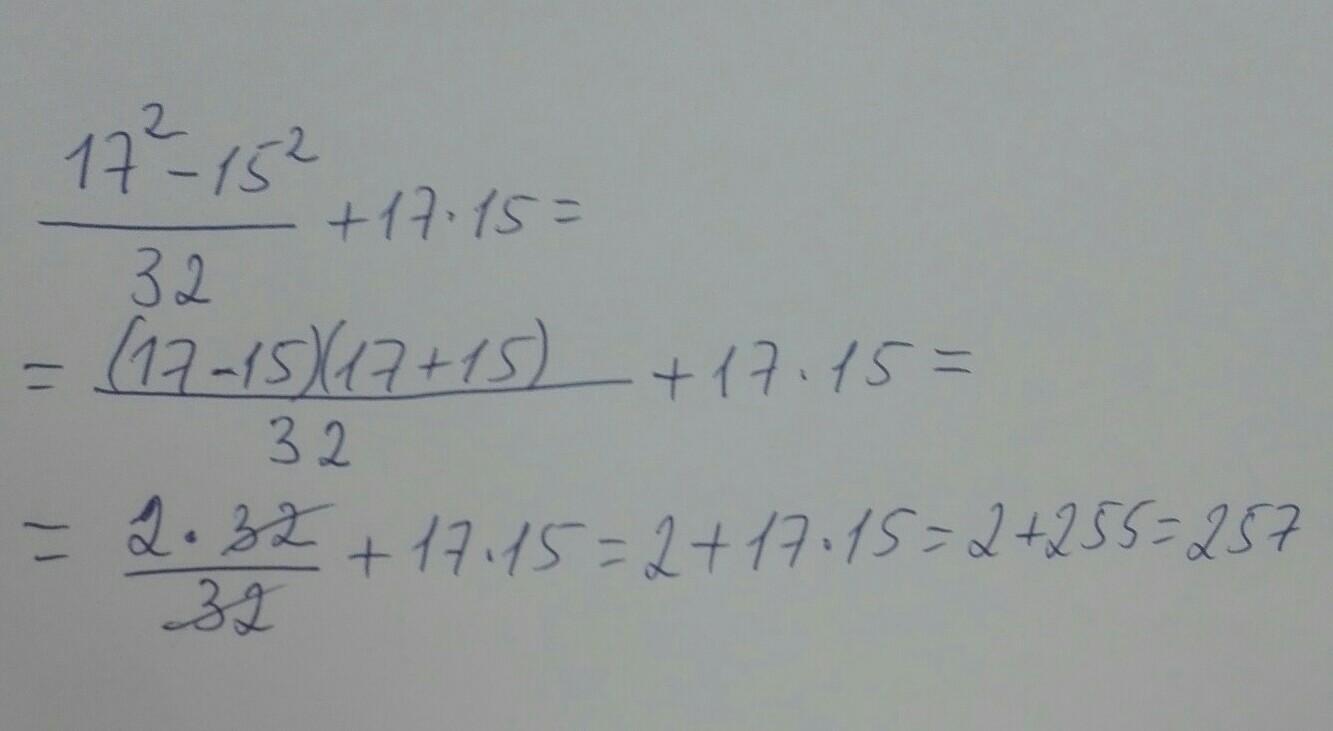 (17² - 15²)/32 + 17 · 15 =
= ((17 - 15)(17 + 15))/32 + 17 · 15 =
= (2 · 32)/32 + 17 · 15 = 2 + 17 · 15 = 2 + 255 = 257